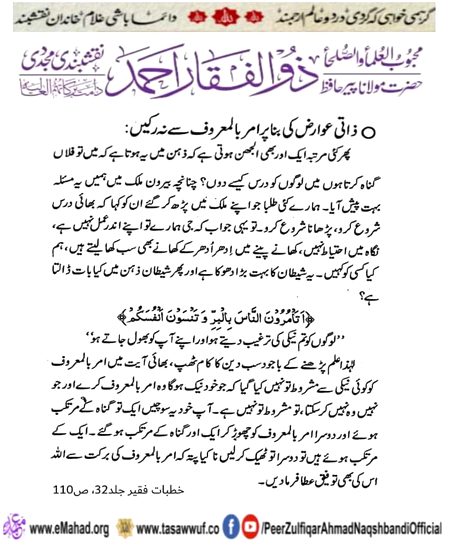 گر ہمی خواہی کہ گردی در دو عالم ارجمند
اللہ
دائما باشی غلام خاندان نقشبند
محبوب العلماء والصلحاء
حضرت مولانا پیر حافظ
ذوالفقار احمد
نقشبندی مجددی
دامت برکاتہم العالیہ
ذاتی عوارض کی بنا پر امر بالمعروف سے نہ رکیں:
پھر کئی مرتبہ ایک اور بھی الجھن ہوتی ہے کہ ذہن میں یہ ہوتا ہے کہ میں تو فلاں
گناہ کرتا ہوں میں لوگوں کو درس کیسے دوں؟ چنانچہ بیرون ملک میں ہمیں یہ مسئلہ
بہت پیش آیا۔ ہمارے کئی طلبا جو اپنے ملک میں پڑھ کر گئے ان کو کہا کہ بھائی درس
شروع کرو، پڑھانا شروع کرو۔ تو یہی جواب کہ جی ہمارے تو اپنے اندر عمل نہیں ہے،
نگاہ میں احتیاط نہیں، کھانے پینے میں اِدھر اُدھر کے کھانے بھی سب کھا لیتے ہیں، ہم
کیا کسی کو کہیں۔ یہ شیطان کا بہت بڑا دھوکا ہے اور پھر شیطان ذہن میں کیا بات ڈالتا
ہے؟
﴿اَتَأْمُرُوْنَ النَّاسَ بِالْبِرِّ وَ تَنْسَوْنَ اَنْفُسَكُمْ﴾
’’لوگوں کو تم نیکی کی ترغیب دیتے ہو اور اپنے آپ کو بھول جاتے ہو‘‘
لہٰذا علم پڑھنے کے باوجود سب دین کا کام ٹھپ، بھائی آیت میں امر بالمعروف
کو کوئی نیکی سے مشروط تو نہیں کیا گیا کہ جو خود نیک ہوگا وہ امر بالمعروف کرے اور جو
نہیں وہ نہیں کر سکتا، تو مشروط تو نہیں ہے۔ آپ خود یہ سوچیں ایک تو گناہ کے مرتکب
ہوئے اور دوسرا امر بالمعروف کو چھوڑ کر ایک اور گناہ کے مرتکب ہو گئے۔ ایک کے
مرتکب ہوئے ہیں تو دوسرا تو ٹھیک کر لیں نا کیا پتہ کہ امر بالمعروف کی برکت سے اللہ
اس کی بھی توفیق عطا فرما دیں۔
خطبات فقیر جلد32، ص110
www.eMahad.org
www.tasawwuf.co
/PeerZulfiqarAhmadNaqshbandiOfficial